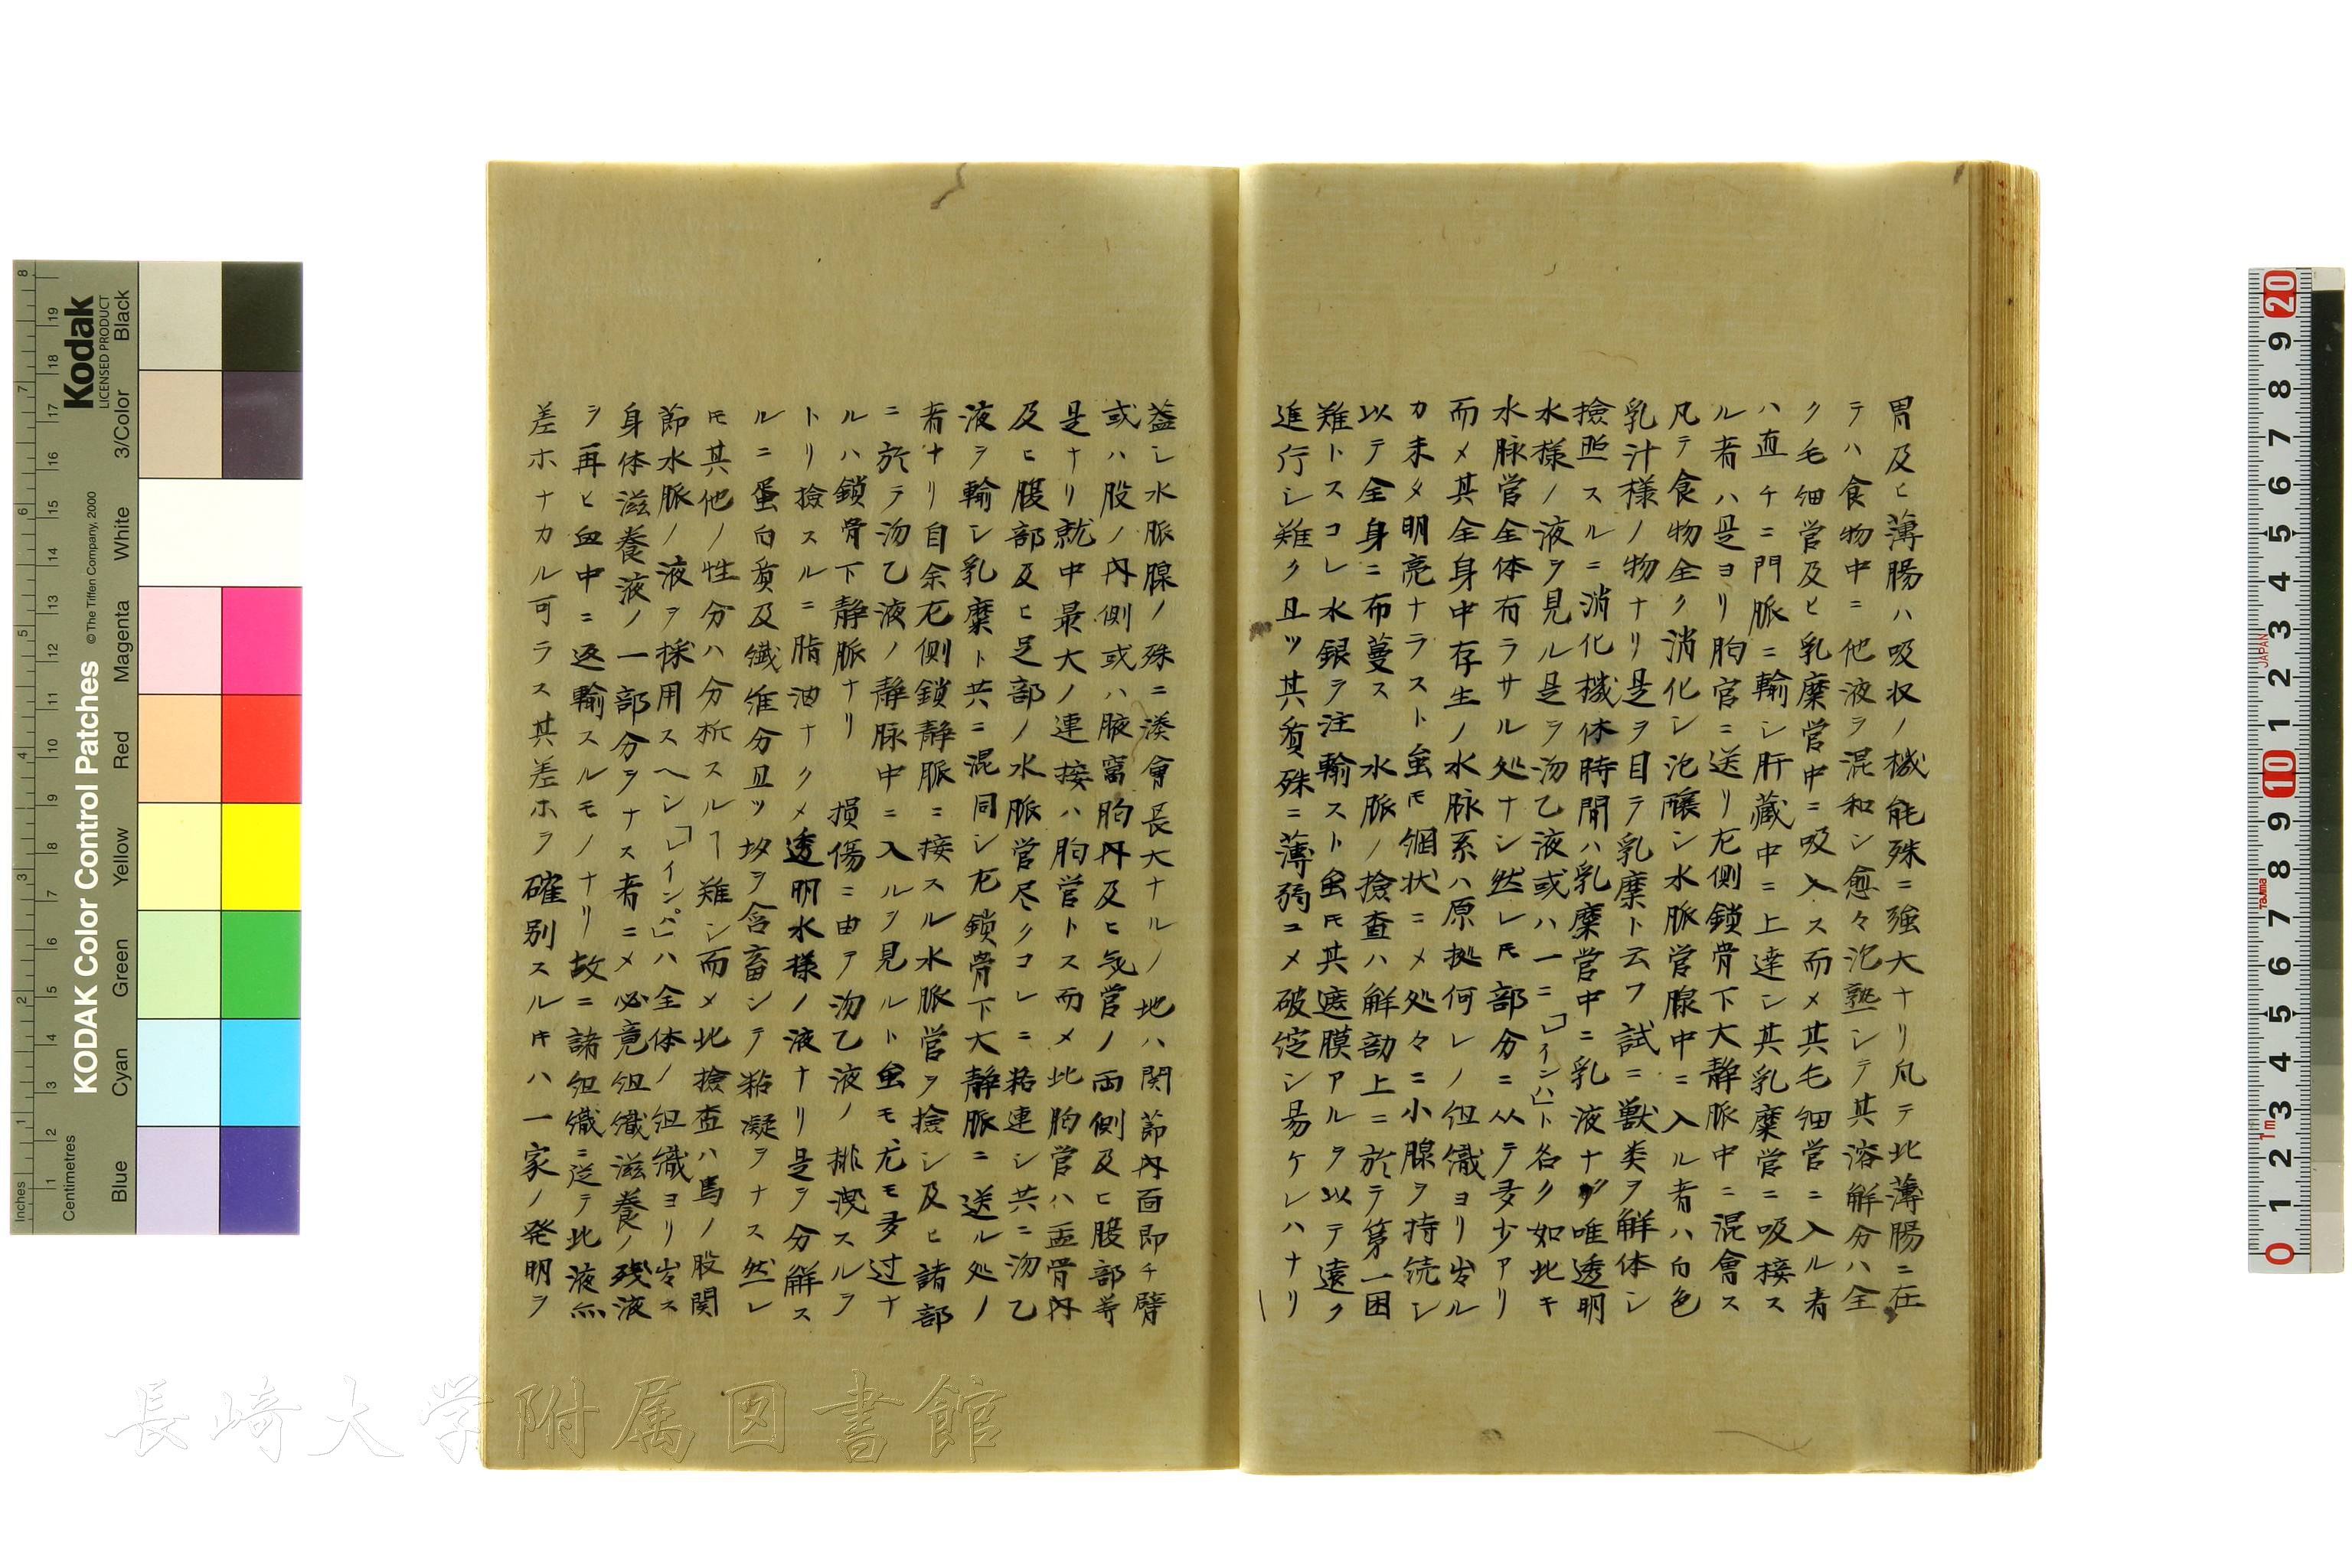 胃及ヒ薄腸ハ吸収ノ機能殊ニ強大ナリ凡テ此薄腸ニ在
テハ食物中ニ他液ヲ混和シ愈々沱熟シテ其溶解分ハ全
ク毛細管及ヒ乳糜管中ニ吸入ス而メ其毛細管ニ入ル者
ハ直チニ門脈ニ輸シ肝蔵中ニ上達シ其乳糜管ニ吸接ス
ル者ハ是ヨリ胸官ニ送リ左側鎖骨下大静脈中ニ混會ス
凡テ食物全ク消化シ沱醸シ水脈管腺中ニ入ル者ハ白色
乳汁様ノ物ナリ是ヲ目ラ乳糜ト云フ試ニ獣类ヲ解体シ
撿照スルニ消化機休時間ハ乳糜管中ニ乳液ナク唯透明
水様ノ液ヲ見ル是ヲ沕乙液或ハ一ニ「レインハ」ト名ク如此キ
水脉管全体有ラサル処ナシ然レ𪜈部分ニ从テ多少アリ
而メ其全身中存生ノ水脉系ハ原拠何レノ组織ヨリ岁ル
カ未タ明亮ナラスト虽𪜈網状ニメ処々ニ小腺ヲ持続シ
以テ全身ニ布蔓ス 水脈ノ撿查ハ解剖上ニ於テ第一困
難トスコレ水銀ヲ注輸スト虽𪜈其遮膜アルヲ以テ遠ク
進行シ難ク且ツ其質殊ニ薄弱ニメ破綻シ易ケレハナリ
蓋シ水脈腺ノ殊ニ湊會長大ナルノ地ハ関節内面即チ臂
或ハ股ノ内側或ハ腋窩胸内及ヒ気管ノ両側及ヒ腹部等
是ナリ就中最大ノ連接ハ胸管トス而メ此胸管ハ盂骨内
及ヒ腹部及ヒ足部ノ水脈管尽クコレニ粘連シ共ニ沕乙
液ヲ輸シ乳糜ト共ニ混同シ左鎖骨下大静脈ニ送ル処ノ
者ナリ自余右側鎖静脈ニ接スル水脈管ヲ撿シ及ヒ諸部
ニ於テ沕乙液ノ静脉中ニ入ルヲ見ルト虽モ尤モ多过ナ
ルハ鎖骨下静脈ナリ 損傷ニ由テ沕乙液ノ排洩スルヲ
トリ撿スルニ脂油ナクメ透明水様ノ液ナリ是ヲ分解ス
ルニ蛋白質及繊维分且ツ塩ヲ含畜シテ粘凝ヲナス然レ
𪜈其他ノ性分ハ分析スルヿ難シ而メ此撿査ハ馬ノ股関
節水脈ノ液ヲ採用スヘシ「レインパ」ハ全体ノ组織ヨリ岁ス
身体滋養液ノ一部分ヲナス者ニメ必竟组織滋養ノ残液
ヲ再ヒ血中ニ返輸スルモノナリ故ニ諸组織ニ従テ此液亦
差ホナカル可ラス其差ホヲ確別スル𪜈ハ一家ノ発明ヲ
長崎大学附属図書館
KODAK Color Control Patches
© The Tiffen Company, 2000
Kodak
LICENSED PRODUCT
Inches
Centimetres
Blue Cyan Green Yellow Red Magenta White 3/Color Black
JAPAN
Tajima